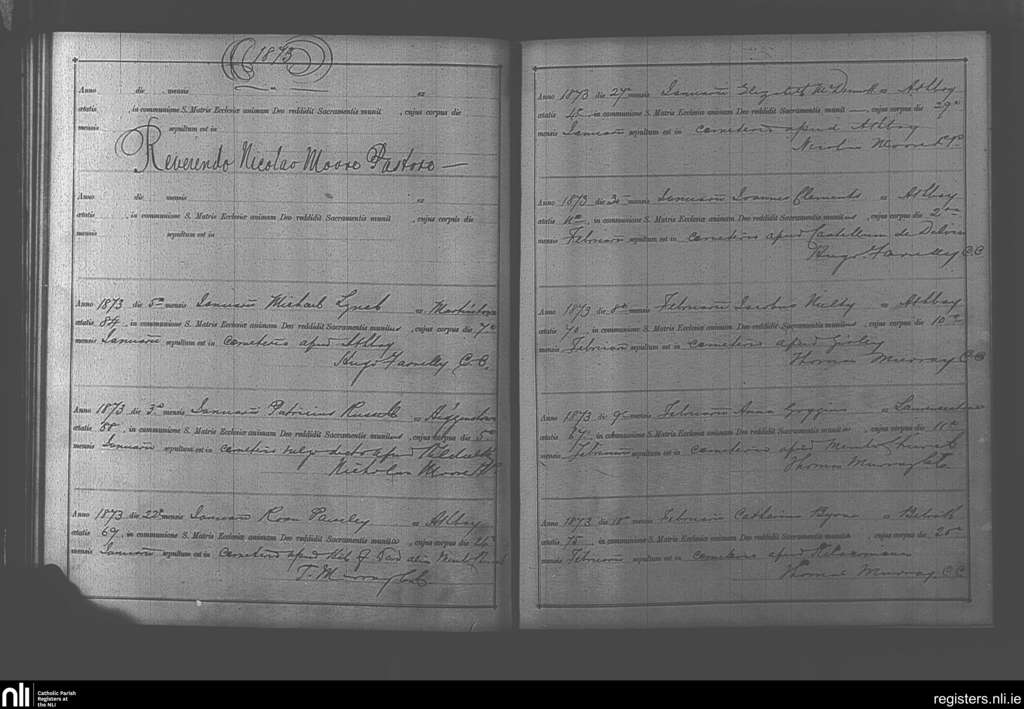 1873
Anno die mensis ex
ætatis , in communione S. Matris Ecclesiæ animam Deo reddidit Sacramentis munit , cujus corpus die
mensis sepultum est in
Reverendo Nicolao Moore Pastore —
Anno die mensis ex
ætatis , in communione S. Matris Ecclesiæ animam Deo reddidit Sacramentis munit , cujus corpus die
mensis sepultum est in
Anno 1873 die 5º mensis Januarii Michael Lynch ex
ætatis 84, in communione S. Matris Ecclesiæ animam Deo reddidit Sacramentis munitus , cujus corpus die 7º
mensis Januarii sepultum est in cemeterio apud Athboy
Hugo Farrelly C.C.
Anno 1873 die 3º mensis Januarii Patricius Russell ex
ætatis 88, in communione S. Matris Ecclesiæ animam Deo reddidit Sacramentis munitus , cujus corpus die 5º
mensis Januarii sepultum est in cemeterio vulgo dicto apud
Nicholas Moore P.P.
Anno 1873 die 22º mensis Januarii Rosa ex Athboy
ætatis 69, in communione S. Matris Ecclesiæ animam Deo reddidit Sacramentis munita , cujus corpus die 24º
mensis Januarii sepultum est in cemeterio apud
T. Murray C.C.
Anno 1873 die 27º mensis Januarii Elizabeth McDermott ex Athboy
ætatis 45, in communione S. Matris Ecclesiæ animam Deo reddidit Sacramentis munit , cujus corpus die 29º
mensis Januarii sepultum est in cemeterio apud Athboy
Nicolas Moore P.P.
Anno 1873 die mensis Januarii Joannes Clements ex Athboy
ætatis , in communione S. Matris Ecclesiæ animam Deo reddidit Sacramentis munitus , cujus corpus die 2º
mensis Februarii sepultum est in cemeterio apud Castellum de Delvin
Hugo Farrelly C.C.
Anno 1873 die 8º mensis Februarii Jacobus ex Athboy
ætatis 70, in communione S. Matris Ecclesiæ animam Deo reddidit Sacramentis munitus , cujus corpus die 10º
mensis Februarii sepultum est in cemeterio apud Girley
Thomas Murray C.C.
Anno 1873 die 9º mensis Februarii Anna Goggins ex
ætatis 67, in communione S. Matris Ecclesiæ animam Deo reddidit Sacramentis munit , cujus corpus die 11º
mensis Februarii sepultum est in cemeterio apud
Thomas Murray C.C.
Anno 1873 die 18º mensis Februarii Catharina Byrne ex
ætatis 75, in communione S. Matris Ecclesiæ animam Deo reddidit Sacramentis munit , cujus corpus die 20º
mensis Februarii sepultum est in cemeterio apud
Thomas Murray C.C.
nli
Catholic Parish
Registers at
the NLI
registers.nli.ie